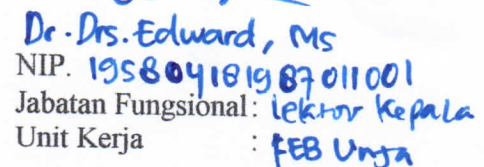 Dr. Drs. Edward, MS
NIP. 195804181987011001
Jabatan Fungsional : Lektor Kepala
Unit Kerja : FEB Unja